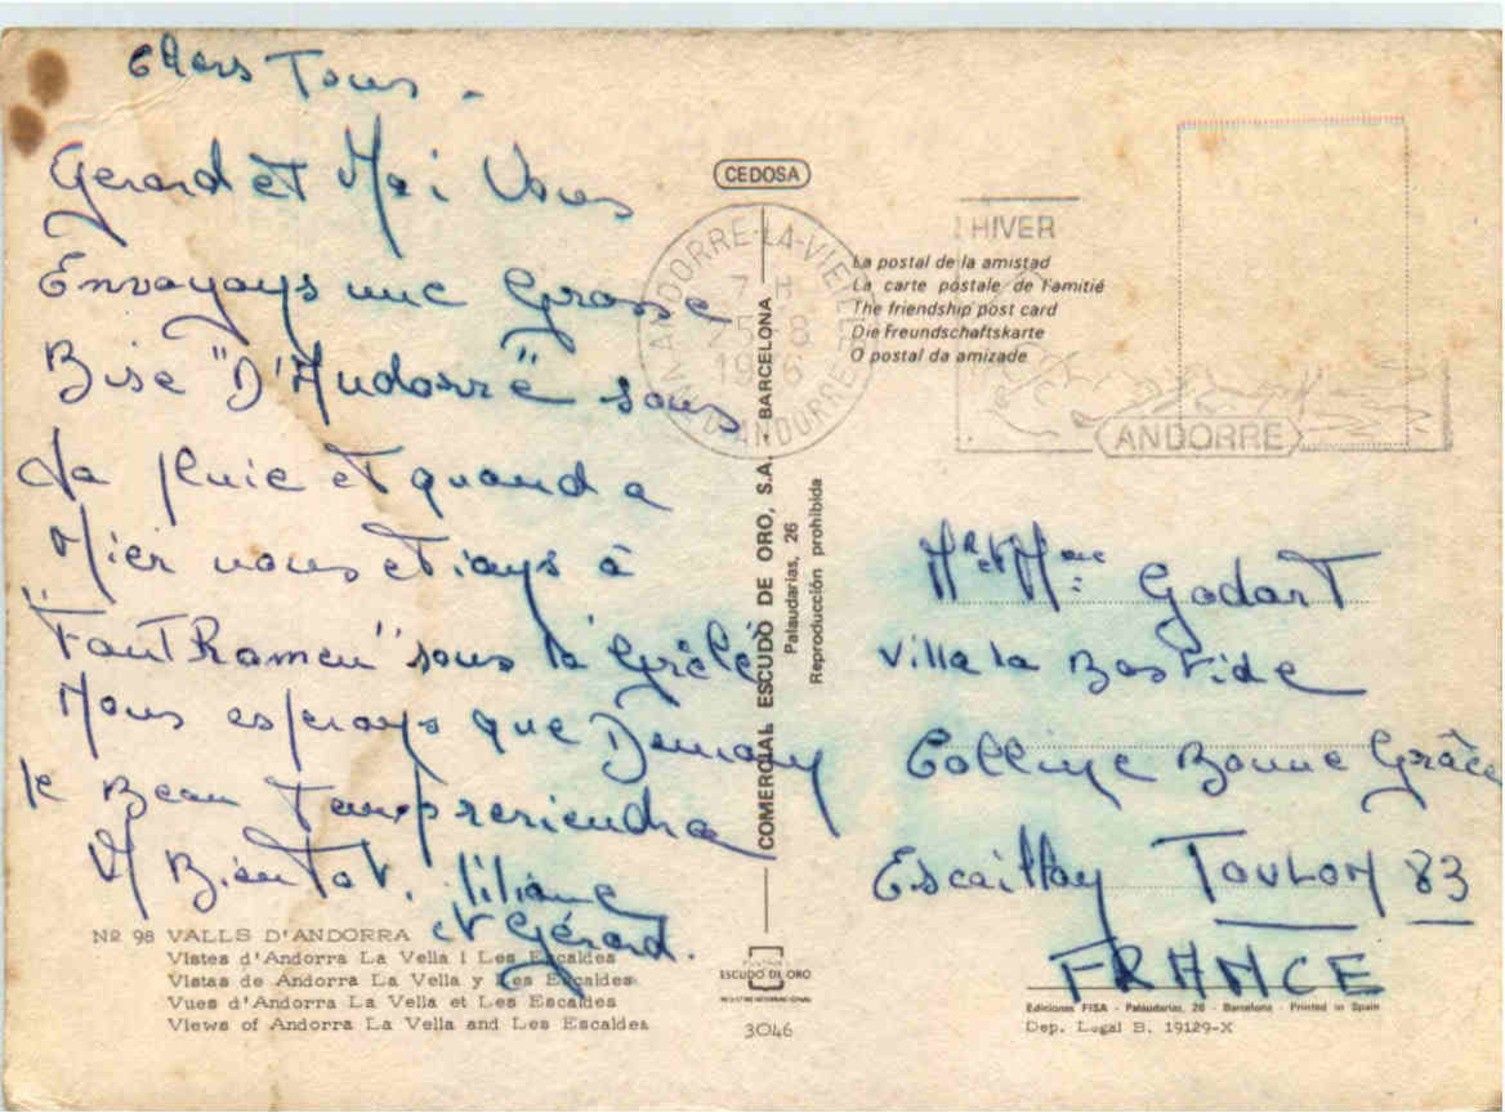 Chers Tous -
Gerard et Moi Vous
Envoyons une Grosse
Bise "D'Andorre" sous
La pluie et quand a
Hier nous etions à
"FontRomeu" sous la Grêle
Nous esperons que Demain
le Beau Temps reviendra
A Bientot. liliane
et Gérard.
Nº 98 VALLS D'ANDORRA
Vistes d'Andorra La Vella i Les Escaldes
Vistas de Andorra La Vella y Les Escaldes
Vues d'Andorra La Vella et Les Escaldes
Views of Andorra La Vella and Les Escaldes
CEDOSA
COMERCIAL ESCUDO DE ORO, S.A. - BARCELONA
Palaudarias, 26
Reproducción prohibida
ESCUDO DE ORO
3046
ANDORRE-LA-VIEILLE
7 H
25 8
HIVER
ANDORRE
La postal de la amistad
La carte postale de l'amitié
The friendship post card
Die Freundschaftskarte
O postal da amizade
Mr et Mme Godart
Villa la Bastide
Colline Bonne Grâce
Escaillon TOULON 83
FRANCE
Ediciones FISA - Palaudarias, 26 - Barcelona - Printed in Spain
Dep. Legal B. 19129-X